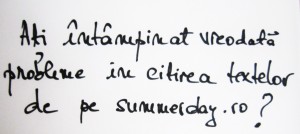 Ați întâmpinat vreodată
probleme in citirea textelor
de pe summerday.ro?